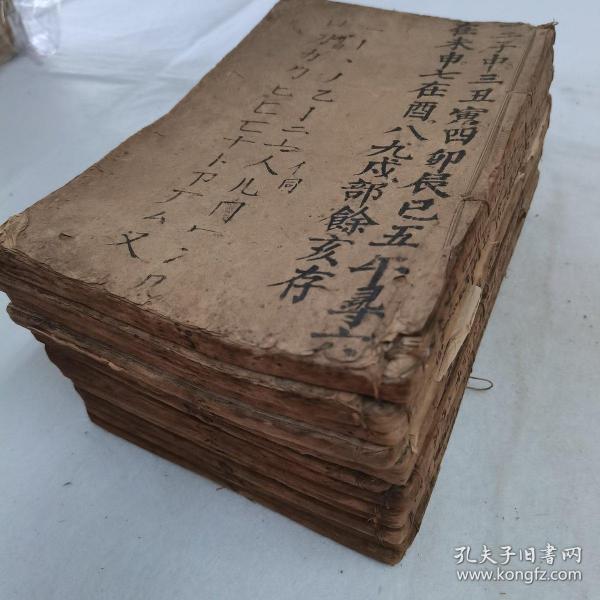 二子中三丑寅四卯辰巳五午尋六
在未申七在酉八九戍部餘亥存
一丨丶丿乙亅二亠人儿冂冖冫几
亻同
力勹匕匚匸十卜卩厂厶又
孔夫子旧书网
www.kongfz.com